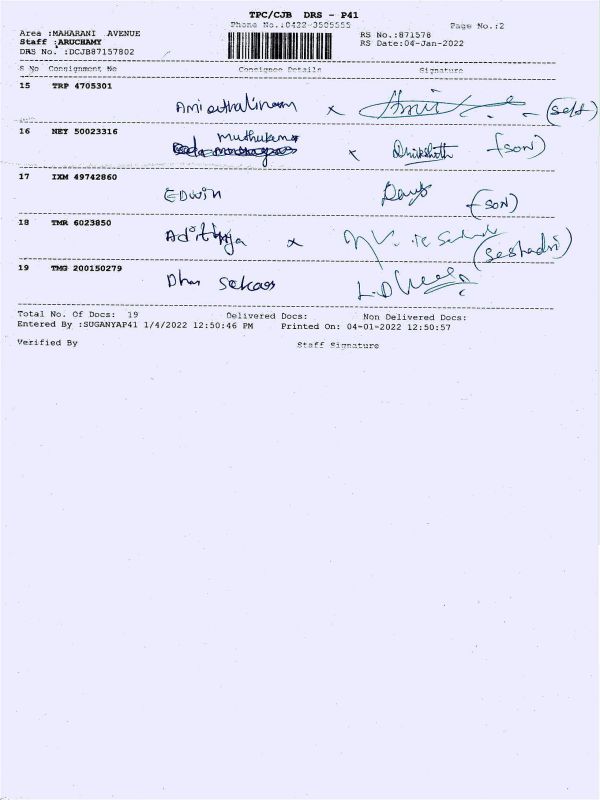 TPC/CJB DRS - P41
Phone No.:0422-3505555 Page No.:2
Area :MAHARANI AVENUE RS No.:871578
Staff :ARUCHAMY RS Date:04-Jan-2022
DRS No. :DCJB87157802
S No Consignment No Consignee Details Signature
15 TRP 4705301
x (self)
16 NEY 50023316
x (SON)
17 IXM 49742860
EDWIN (SON)
18 TMR 6023850
Adithya x (Seshadri)
19 TMG 200150279
Total No. Of Docs: 19 Delivered Docs: Non Delivered Docs:
Entered By :SUGANYAP41 1/4/2022 12:50:46 PM Printed On: 04-01-2022 12:50:57
Verified By Staff Signature